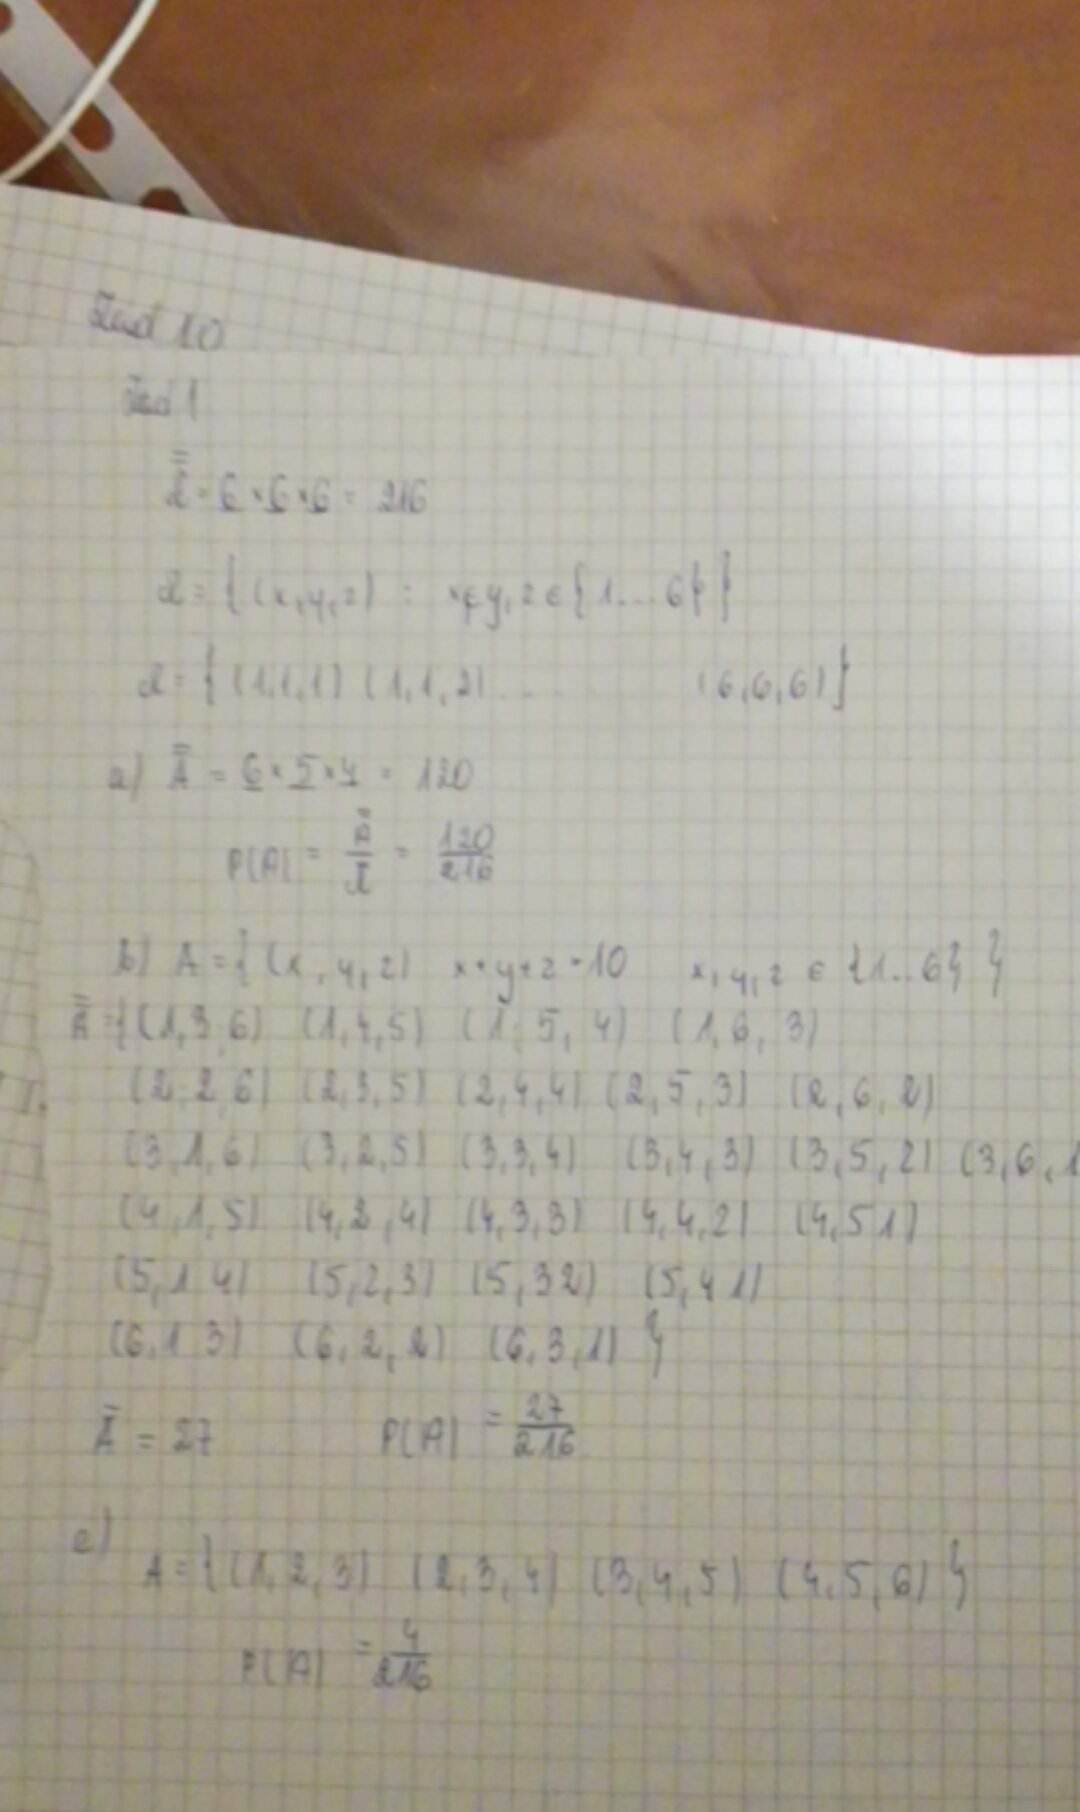 Zad 10
Zad 1
Ω̿ = 6 × 6 × 6 = 216
Ω = { (x, y, z) : x, y, z ∈ { 1... 6} }
Ω = { (1,1,1) (1,1,2) ... (6,6,6) }
a) A̿ = 6 × 5 × 4 = 120
P(A) = A̿/Ω̿ = 120/216
b) A = { (x, y, z) x + y + z = 10 x, y, z ∈ {1...6} }
A̿ = { (1,3,6) (1,4,5) (1, 5, 4) (1, 6, 3)
(2,2,6) (2,3,5) (2,4,4) (2,5,3) (2,6,2)
(3,1,6) (3,2,5) (3,3,4) (3,4,3) (3,5,2) (3,6,1
(4,1,5) (4,2,4) (4,3,3) (4,4,2) (4,5 1)
(5,1 4) (5,2,3) (5,3 2) (5,4 1)
(6,1 3) (6,2,2) (6,3,1) }
A̿ = 27 P(A) = 27/216
c)
A = { (1,2,3) (2,3,4) (3,4,5) (4,5,6) }
P(A) = 4/216